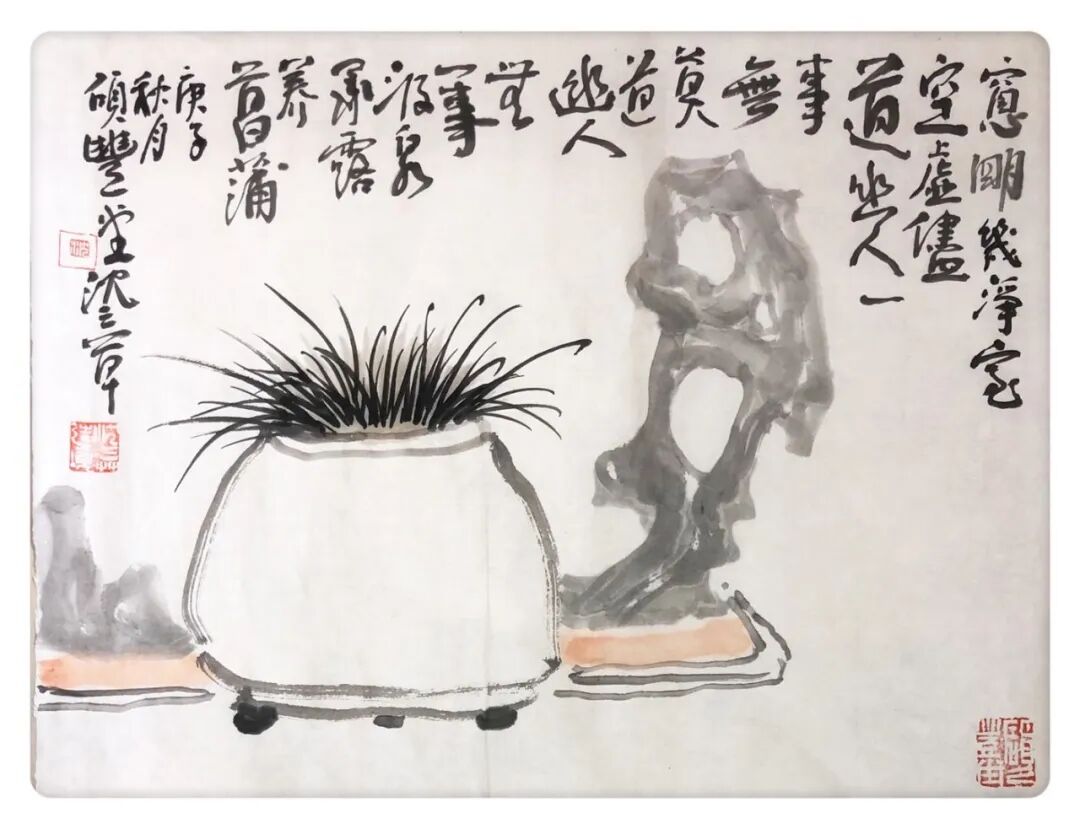 窓朙幾淨室
空虛儘
道幽人一
事
無
莫
道
幽人
無
一事
汲泉
承露
養
菖蒲
庚子
秋月
碩豐堂沈三草